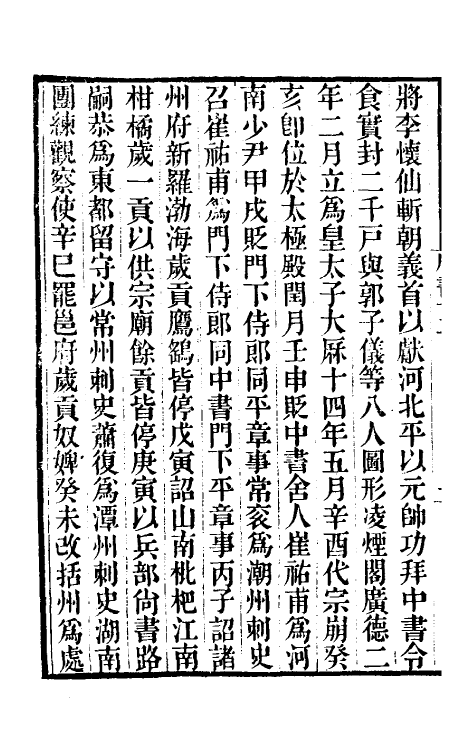 將李懷仙斬朝義首以獻河北平以元帥功拜中書令
食實封二千戸與郭子儀等八人圖形凌煙閣廣德二
年二月立爲皇太子大厤十四年五月辛酉代宗崩癸
亥卽位於太極殿閏月壬申貶中書舍人崔祐甫爲河
南少尹甲戌貶門下侍郎同平章事常袞爲潮州刺史
召崔祐甫爲門下侍郎同中書門下平章事丙子詔諸
州府新羅渤海歲貢鷹鷂皆停戊寅詔山南枇杷江南
柑橘歲一貢以供宗廟餘貢皆停庚寅以兵部尙書路
嗣恭爲東都留守以常州刺史蕭復爲潭州刺史湖南
團練觀察使辛巳罷邕府歲貢奴婢癸未改括州爲處